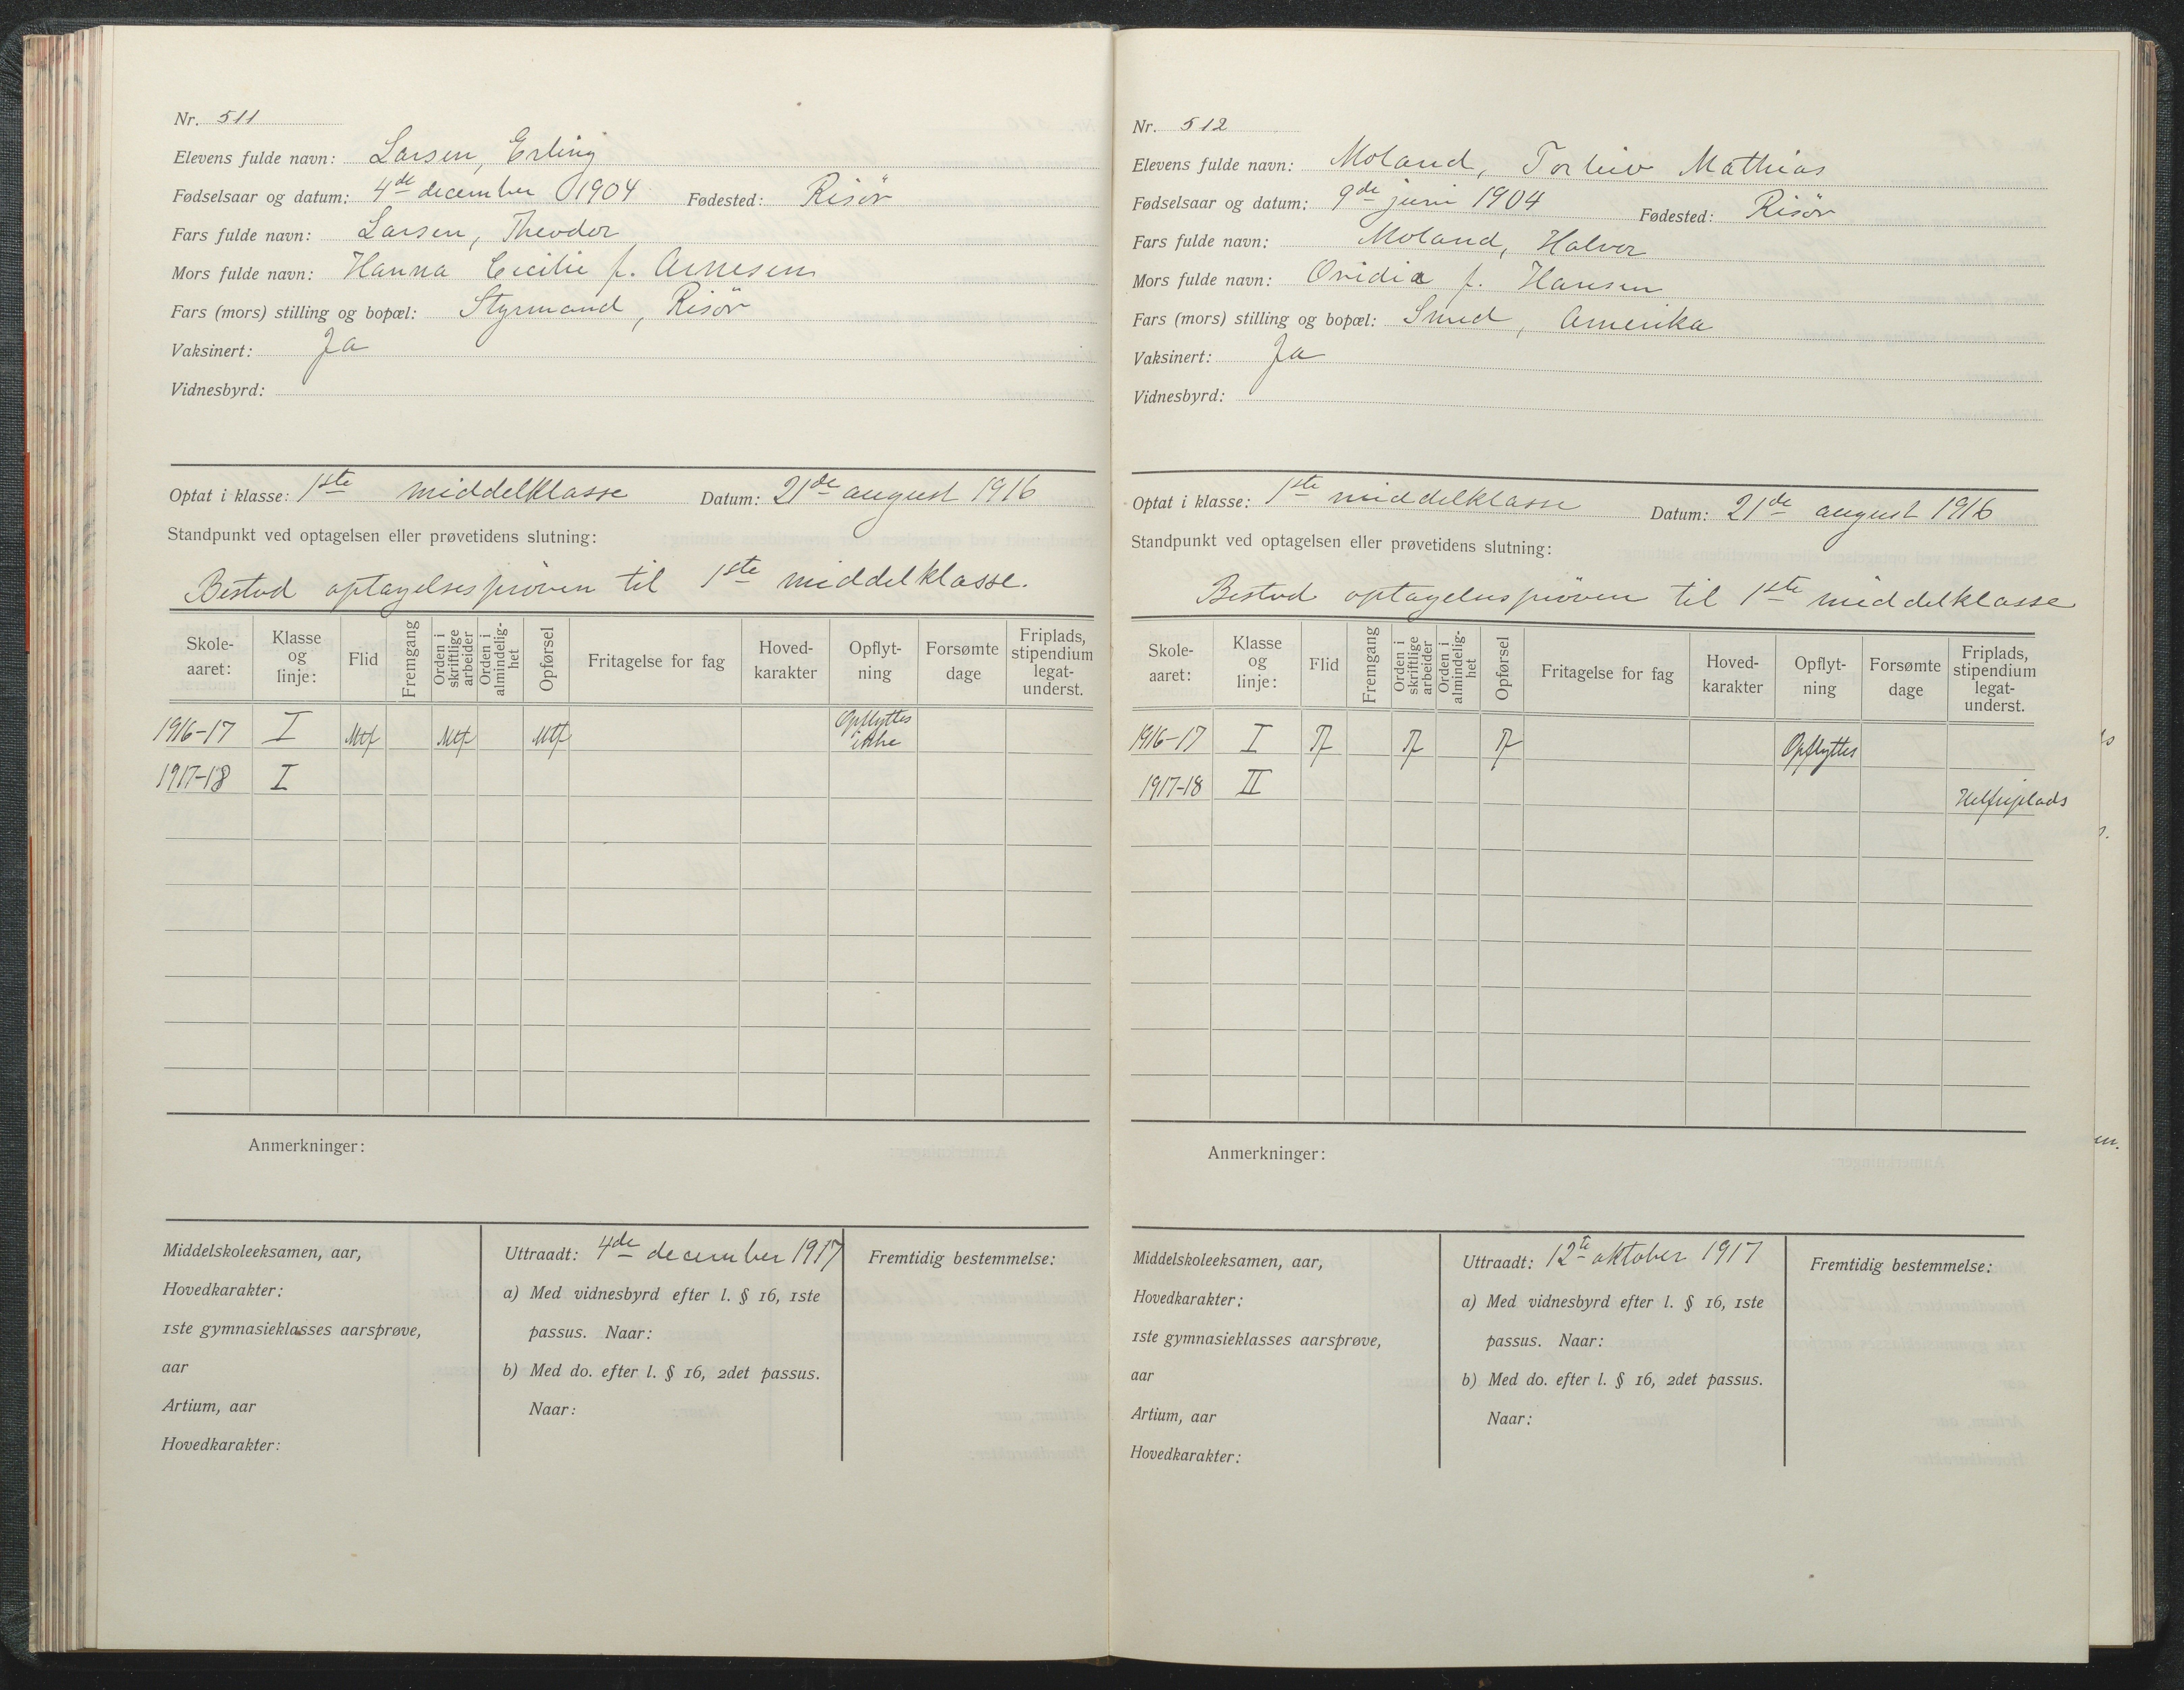 Nr. 511
Elevens fulde navn: Larsen, Erling
Fødselsaar og datum: 4de december 1904 Fødested: Risör
Fars fulde navn: Larsen, Theodor
Mors fulde navn: Hanna Cecilie f. Arnesen
Fars (mors) stilling og bopæl: Styrmand, Risör
Vaksinert: Ja
Vidnesbyrd:
Optat i klasse: 1ste middelklasse Datum: 21de august 1916
Standpunkt ved optagelsen eller prøvetidens slutning:
Bestod optagelsespröven til 1ste middelklasse.
Skole-aaret: Klasse og linje: Flid Fremgang Orden i skriftlige arbeider Orden i almindelig-het Opførsel Fritagelse for fag Hoved-karakter Opflyt-ning Forsømte dage Friplads, stipendium legat-underst.
1916-17 I Mtf Mtf Mtf Opflyttes ikke
1917-18 I
Anmerkninger:
Middelskoleeksamen, aar,
Hovedkarakter:
1ste gymnasieklasses aarsprøve,
aar
Artium, aar
Hovedkarakter:
Uttraadt: 4de december 1917
a) Med vidnesbyrd efter l. § 16, 1ste
passus. Naar:
b) Med do. efter l. § 16, 2det passus.
Naar:
Fremtidig bestemmelse:
Nr. 512
Elevens fulde navn: Moland, Torleiv Mathias
Fødselsaar og datum: 9de juni 1904 Fødested: Risör
Fars fulde navn: Moland, Halvor
Mors fulde navn: Ovidia f. Hansen
Fars (mors) stilling og bopæl: Smed, Amerika
Vaksinert: Ja
Vidnesbyrd:
Optat i klasse: 1ste middelklasse Datum: 21de august 1916
Standpunkt ved optagelsen eller prøvetidens slutning:
Bestod optagelsespröven til 1ste middelklasse
Skole-aaret: Klasse og linje: Flid Fremgang Orden i skriftlige arbeider Orden i almindelig-het Opførsel Fritagelse for fag Hoved-karakter Opflyt-ning Forsømte dage Friplads, stipendium legat-underst.
1916-17 I Tf Tf Tf Opflyttes
1917-18 II Helfriplads
Anmerkninger:
Middelskoleeksamen, aar,
Hovedkarakter:
1ste gymnasieklasses aarsprøve,
aar
Artium, aar
Hovedkarakter:
Uttraadt: 12te oktober 1917
a) Med vidnesbyrd efter l. § 16, 1ste
passus. Naar:
b) Med do. efter l. § 16, 2det passus.
Naar:
Fremtidig bestemmelse: